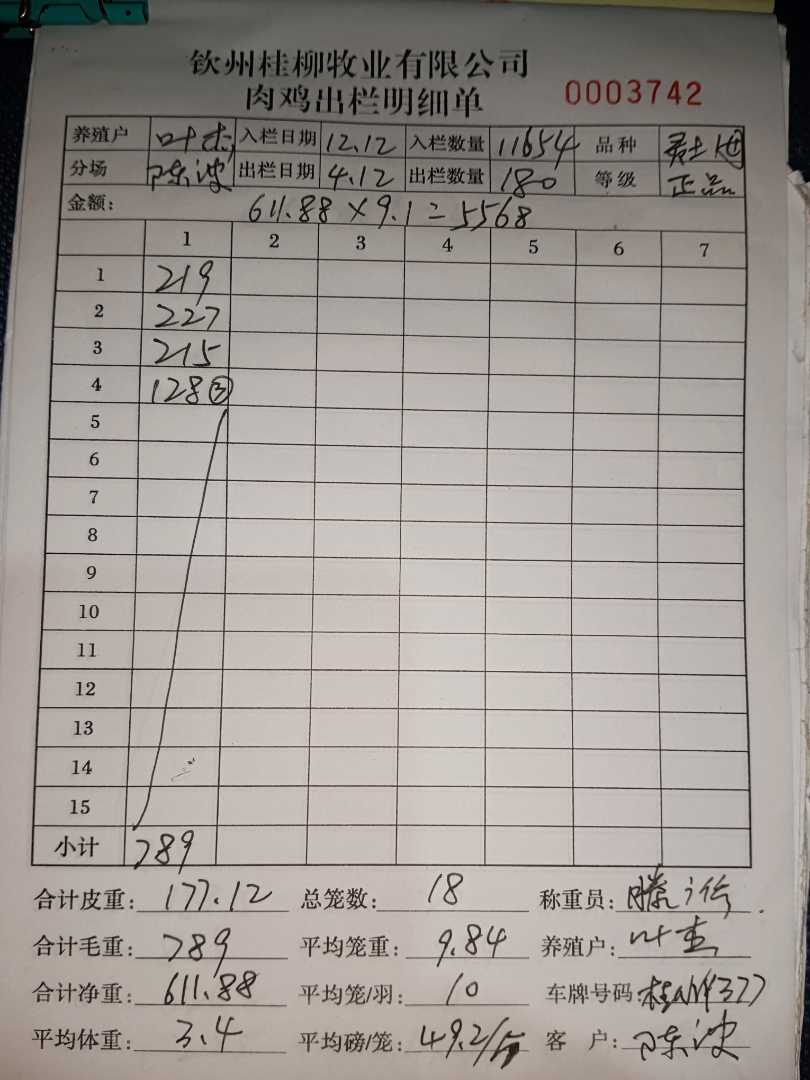 钦州桂柳牧业有限公司
肉鸡出栏明细单 0003742
养殖户 叶杰 入栏日期 12.12 入栏数量 11654 品种
分场 陈波 出栏日期 4.12 出栏数量 180 等级 正品
金额: 611.88×9.1=5568
1 2 3 4 5 6 7
1 219
2 227
3 215
4 128③
5
6
7
8
9
10
11
12
13
14
15
小计 789
合计皮重: 177.12 总笼数: 18 称重员:
合计毛重: 789 平均笼重: 9.84 养殖户: 叶杰
合计净重: 611.88 平均笼/羽: 10 车牌号码:
平均体重: 3.4 平均磅/笼: 49.2/斤 客 户: 陈波